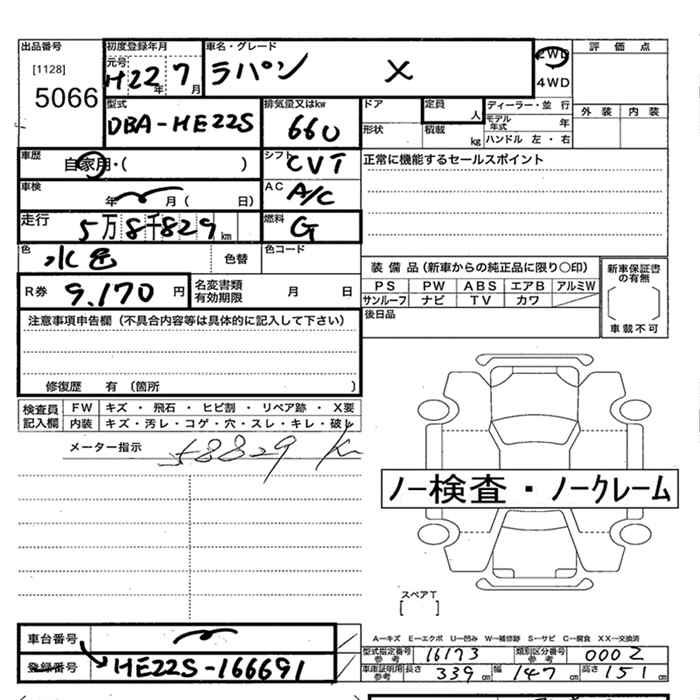 出品番号 初度登録年月 車名・グレード 2WD 評価点
[1128] 元号 H22年7月 ラパン X 4WD
5066
型式 排気量又はkw ドア 定員 人 ディーラー・並行 外装 内装
DBA-HE22S 660 形状 積載 kg モデル年式 年
ハンドル 左・右
車歴 自家用・( ) シフト CVT 正常に機能するセールスポイント
車検 年 月( 日) AC A/C
走行 5万8千829km 燃料 G
色 水色 色替 色コード
R券 9,170円 名変書類有効期限 月 日
装備品(新車からの純正品に限り○印) 新車保証書の有無
PS PW ABS エアB アルミW
サンルーフ ナビ TV カワ
後日品 車載不可
注意事項申告欄(不具合内容等は具体的に記入して下さい)
修復歴 有(箇所 )
検査員記入欄 FW キズ・飛石・ヒビ割・リペア跡・X要
内装 キズ・汚レ・コゲ・穴・スレ・キレ・破レ
メーター指示 58829 km
ノー検査・ノークレーム
スペアT
[ ]
車台番号
登録番号 HE22S-166691
A―キズ E―エクボ U―凹み W―補修跡 S―サビ C―腐食 XX―交換済
型式指定番号参考 16173 類別区分番号参考 0002
車庫証明用参考 長さ 339cm 幅 147cm 高さ 151cm